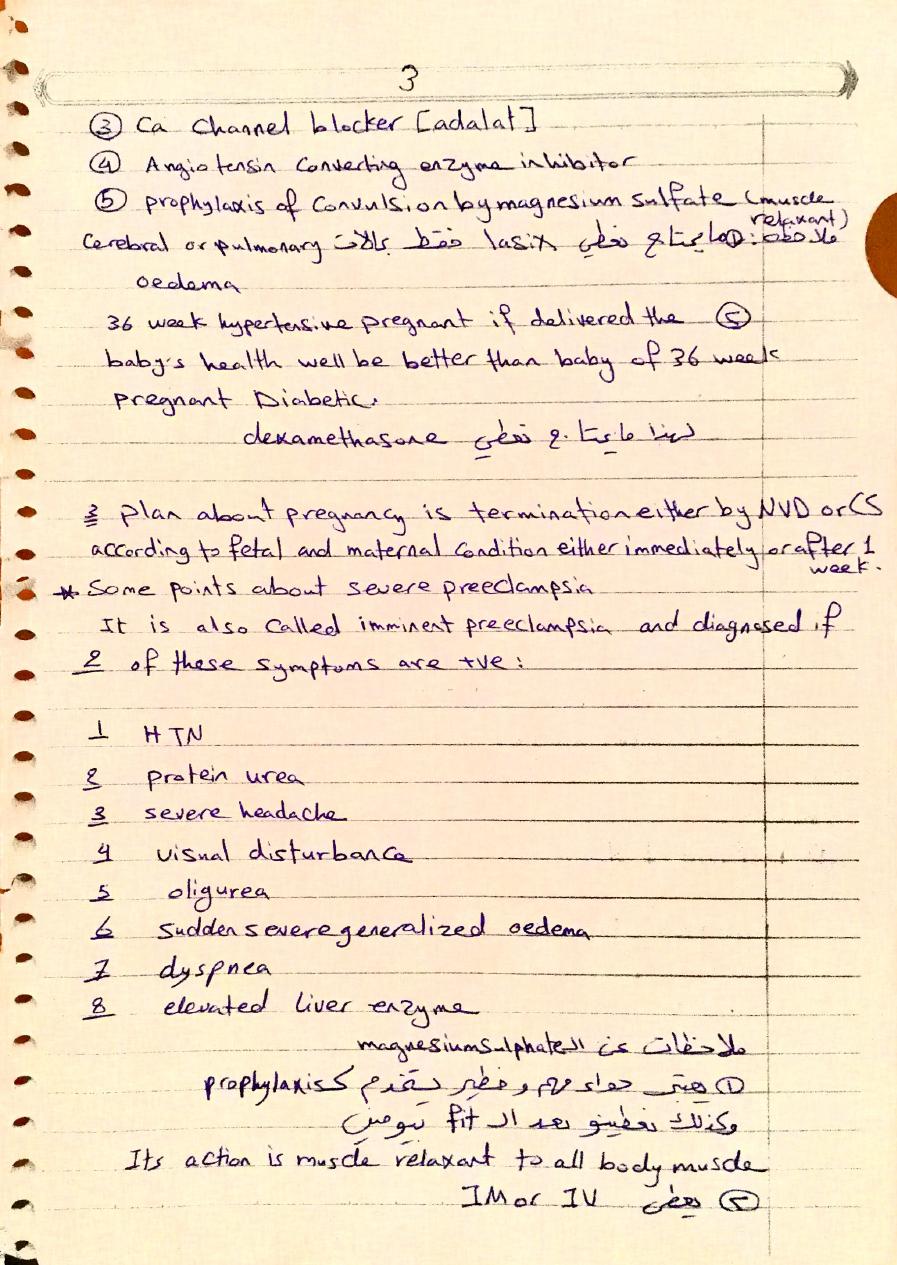 3
③ Ca Channel blocker [adalat]
④ Angiotensin Converting enzyme inhibitor
⑤ prophylaxis of Convulsion by magnesium sulfate (muscle relaxant)
ملاحظة: ① ما يحتاج نعطي lasix فقط بحالات Cerebral or pulmonary
oedema
② 36 week hypertensive pregnant if delivered the
baby's health well be better than baby of 36 week
pregnant Diabetic.
لهذا ما يحتاج نعطي dexamethasone
3 plan about pregnancy is termination either by NVD or CS
according to fetal and maternal Condition either immediately or after 1
week.
* Some points about severe preeclampsia
It is also Called imminent preeclampsia and diagnosed if
2 of these symptoms are +ve:
1 HTN
2 protein urea
3 severe headache
4 visual disturbance
5 oligurea
6 sudden severe generalized oedema
7 dyspnea
8 elevated liver enzyme
ملاحظات عن الـ magnesium sulphate
① يعتبر دواء مهم وخطير يستخدم كـ prophylaxis
وكذلك نعطيو بعد الـ fit بيومين
Its action is muscle relaxant to all body muscle
② يعطى IM or IV